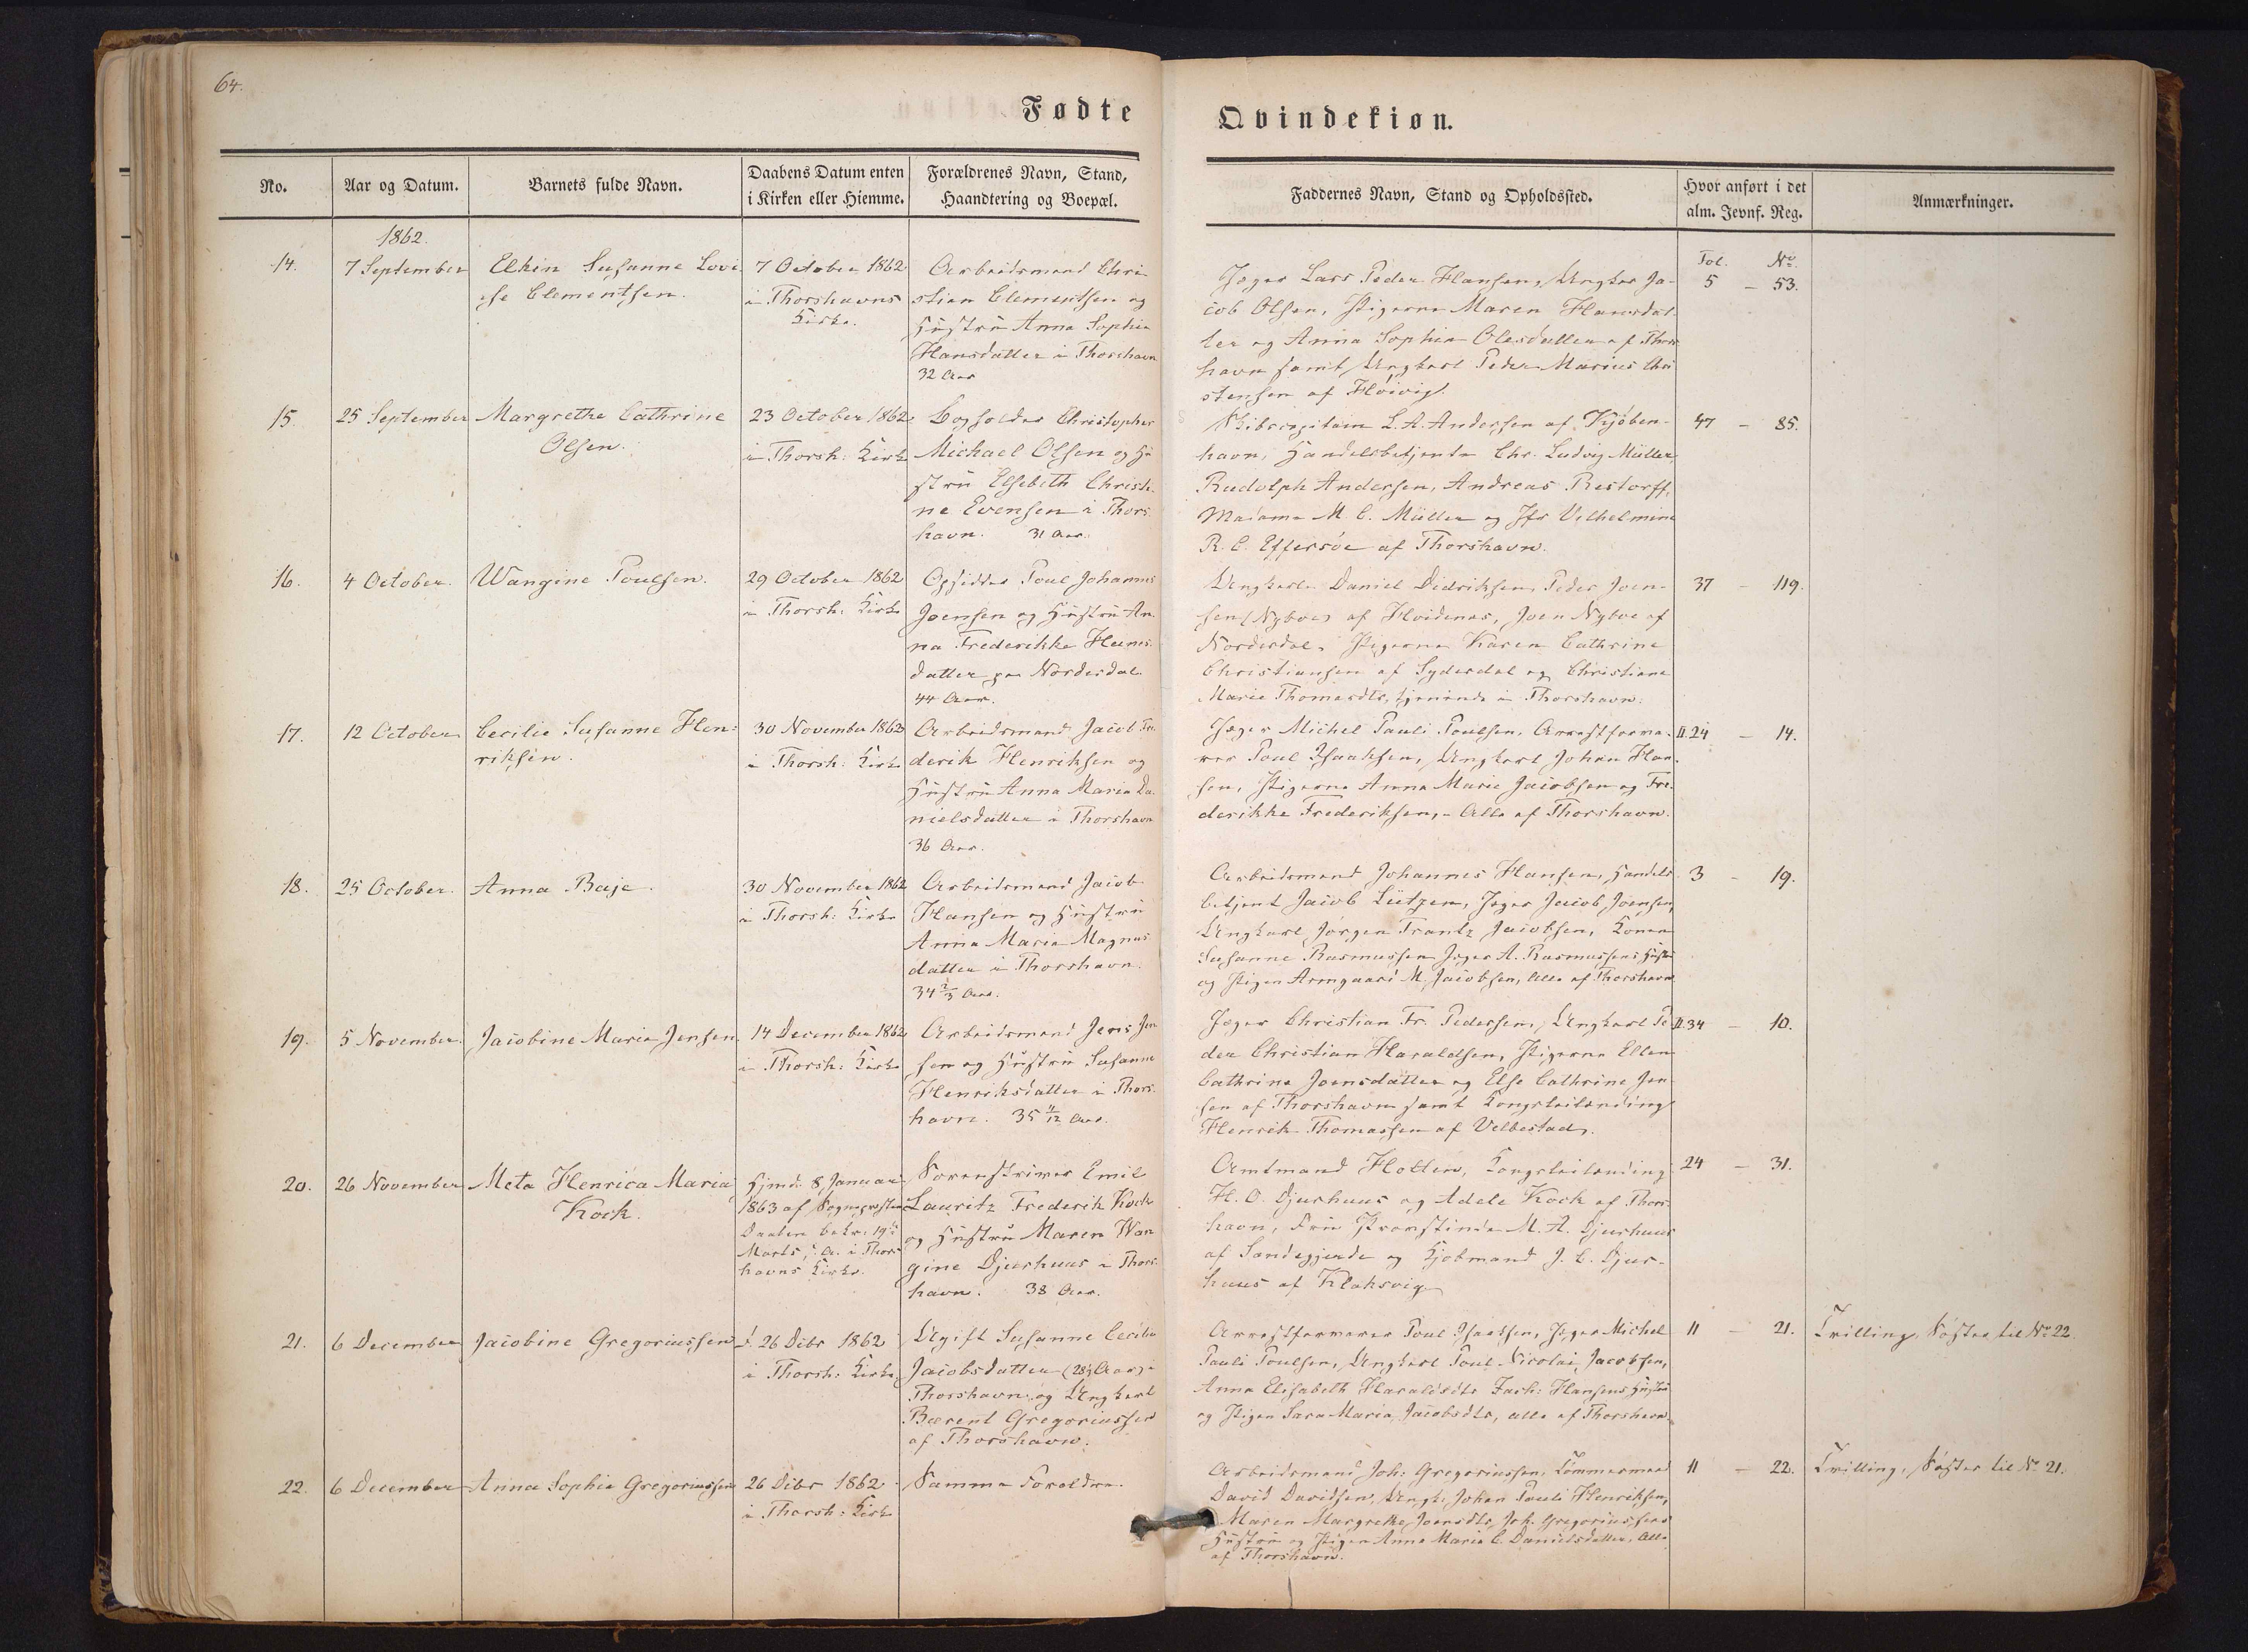 64.
Fødte
Qvindekiøn.
No.
Aar og Datum.
Barnets fulde Navn.
Daabens Datum enten
i Kirken eller Hiemme.
Forældrenes Navn, Stand,
Haandtering og Boepæl.
Faddernes Navn, Stand og Opholdssted.
Hvor anført i det
alm. Jevnf. Reg.
Anmærkninger.
1862.
14.
7 September
Elkin Susanne Lovi-
se Clementsen.
7 October 1862
i Thorshavns
Kirke.
Arbeidsmand Chri-
stian Clementsen og
Hustru Anna Sophia
Hansdatter i Thorshavn
32 Aar
Jæger Lars Peder Hansen, Ungkar Ja-
cob Olsen, Pigerne Maren Hansdat-
ter og Anna Sophia Olesdatter af Thors
havn samt Ungkarl Peder Marius Chri
stensen af Høivig.
Fol. No.
5 - 53.
15.
25 September
Margrethe Cathrine
Olsen.
23 October 1862
i Thorsh: Kirke
Bogholder Christopher
Michael Olsen og Hu
stru Elsebeth Christi-
ne Evensen i Thors-
havn. 31 Aar.
Skibscapitain L. A. Andersen af Kjøben-
havn, Handelsbetjente Chr. Ludvig Müller,
Rudolph Andersen, Andreas Restorff,
Madame M. C. Müller og Jfr Vilhelmine
R. C. Effersöe af Thorshavn.
47 - 85.
16.
4 October.
Wangine Poulsen.
29 October 1862
i Thorsh: Kirke
Opsidder Poul Johannes
Joensen og Hustru An-
na Frederikke Hans-
datter paa Norderdal
44 Aar.
Ungkarle Daniel Didriksen, Peder Joen-
sen (Nyboe) af Hvidenæs, Joen Nyboe af
Norderdal, Pigerne Karen Cathrine
Christiansen af Syderdal og Christiane
Marie Thomasdtr, tjenende i Thorshavn.
37 - 119.
17.
12 October
Cecilie Susanne Hen-
riksen.
30 November 1862
i Thorsh: Kirke
Arbeidsmand Jacob Fre
derik Henriksen og
Hustru Anna Maria Da-
nielsdatter i Thorshavn
36 Aar.
Jæger Michel Pauli Poulsen, Arrestforva-
rer Poul Isaaksen, Ungkarl Johan Han-
sen, Pigerne Anna Marie Jacobsen og Fre-
derikke Frederiksen, - Alle af Thorshavn.
II.24 - 14.
18.
25 October.
Anna Baje.
30 November 1862
i Thorsh: Kirke
Arbeidsmand Jacob
Hansen og Hustru
Anna Maria Magnus-
datter i Thorshavn.
34 2/3 Aar.
Arbeidsmand Johannes Hansen, Handels-
betjent Jacob Lützen, Jæger Jacob Joensen,
Ungkarl Jørgen Frantz Jacobsen, Konen
Susanne Rasmussen Jæger A. Rasmussens Hustru
og Pigen Armgaard M. Jacobsen, Alle af Thorshavn
3 - 19.
19.
5 November.
Jacobine Maria Jensen
14 December 1862
i Thorsh: Kirke
Arbeidsmand Jens Jen
sen og Hustru Susanne
Henriksdatter i Thors-
havn. 35 /12 Aar.
Jæger Christian Fr. Pedersen, Ungkarl Pe-
der Christian Haraldsen, Pigerne Ellen
Cathrine Joensdatter og Else Cathrine Jen-
sen af Thorshavn samt Kongsleilænding
Henrik Thomassen af Velbestad.
II.34 - 10.
20.
26 November
Meta Henrica Maria
Kock.
Hjmd. 8 Januar
1863 af Sognepræsten
Daaben bekr. 19de
Marts, s. A. i Thors
havns Kirke.
Sorenskriver Emil
Lauritz Frederik Kock
og Hustru Maren Wan
gine Djurhuus i Thors-
havn. 38 Aar.
Amtmand Holten, Kongsleilænding
H. O. Djurhuus og Adele Kock af Thors-
havn, Fru Provstinde M. A. Djurhuus
af Sandegjerde og Kjøbmand J. C. Djur-
huus af Klaksvig
24 - 31.
21.
6 December
Jacobine Gregoriussen
26 Dcbr 1862
i Thorsh: Kirke
Ugift Susanne Cecilie
Jacobsdatter (28½ Aar) i
Thorshavn, og Ungkarl
Barent Gregoriussen
af Thorshavn.
Arrestforvarer Poul Isaksen, Jæger Michel
Pauli Poulsen, Ungkarl Poul Nicolai Jacobsen,
Anna Elisabeth Haraldsdtr Zach: Hansens Hustru
og Pigen Sara Maria Jacobsdtr, alle af Thorshavn.
11 - 21.
Tvilling, Søster til No 22.
22.
6 December
Anna Sophia Gregoriussen
26 Dcbr 1862
i Thorsh: Kirke
Samme Forældre.
Arbeidsmand Joh: Gregoriussen, Tømmermand
David Davidsen, Ungk: Johan Pauli Henriksen,
Maren Margrethe Joensdtr, Joh. Gregoriussens
Hustru og Pigen Anna Maria C. Danielsdatter, Alle
af Thorshavn.
11 - 22.
Tvilling, Søster til No 21.